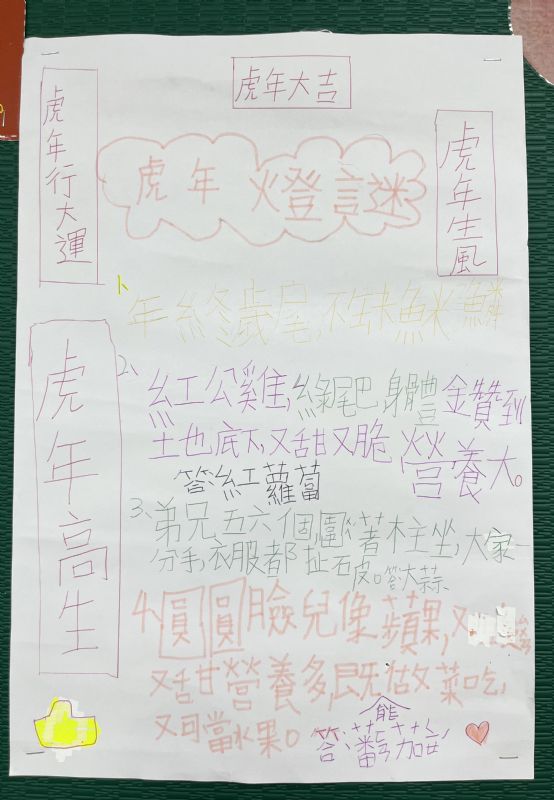 虎年大吉
虎年行大運
虎年生風
虎年燈謎
虎年高生
1、年終歲尾,不缺魚米 鱗
2、紅公雞,綠尾巴,身體金贊到
土也底下,又甜又脆,營養大。
答紅蘿蔔
3、弟兄五六個,圍著柱坐,大家一
分手,衣服都扯破。答大蒜
4、圓圓臉兒像蘋果,又
又甜營養多,既能做菜吃,
又可當水果。答:蕃茄